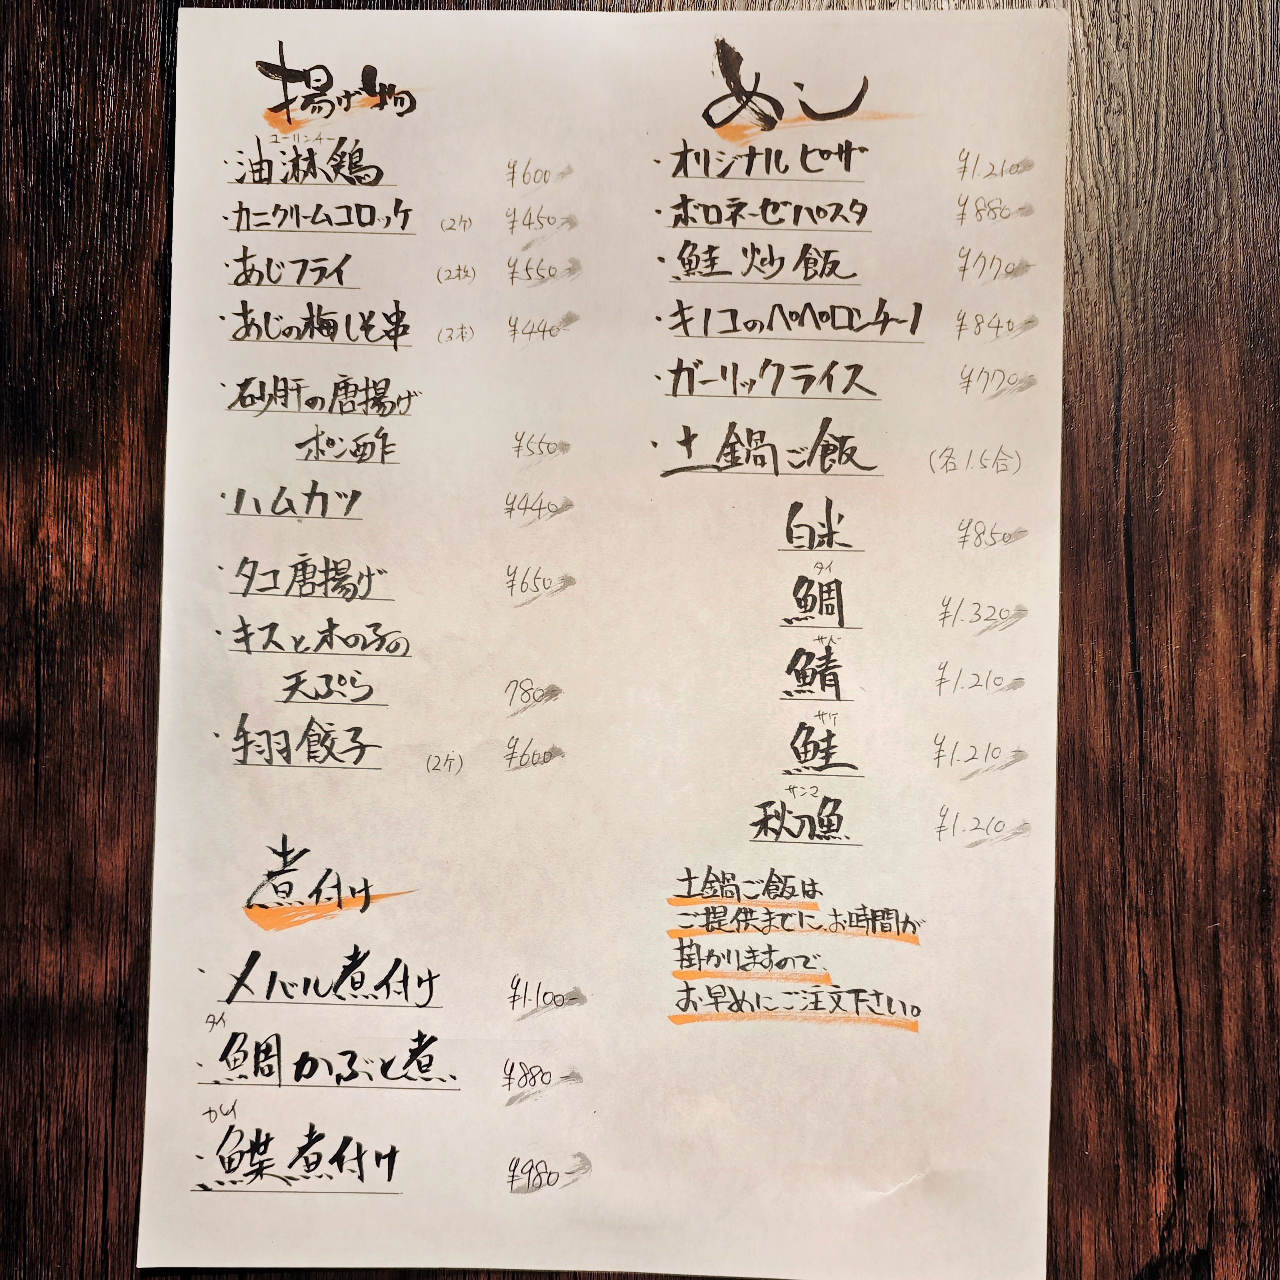 揚げ物
ユーリンチー
・油淋鶏 ¥600-
・カニクリームコロッケ (2ケ) ¥450-
・あじフライ (2枚) ¥550-
・あじの梅しそ串 (3本) ¥440-
砂肝の唐揚げ
ポン酢 ¥550-
・ハムカツ ¥440-
・タコ唐揚げ ¥650-
・キスと木の子の
天ぷら 780-
・手羽餃子 (2ケ) ¥600-
煮付け
・メバル煮付け ¥1.100-
タイ
・鯛かぶと煮 ¥880-
カレイ
・鰈煮付け ¥980-
めし
・オリジナルピザ ¥1.210-
・ボロネーゼパスタ ¥880-
・鮭炒飯 ¥770-
・キノコのペペロンチーノ ¥840-
・ガーリックライス ¥770-
・土鍋ご飯 (各1.5合)
白米 ¥850-
タイ
鯛 ¥1.320-
サバ
鯖 ¥1.210-
サケ
鮭 ¥1.210-
サンマ
秋刀魚 ¥1.210-
土鍋ご飯は
ご提供までに、お時間が
掛かりますので、
お早めにご注文下さい。